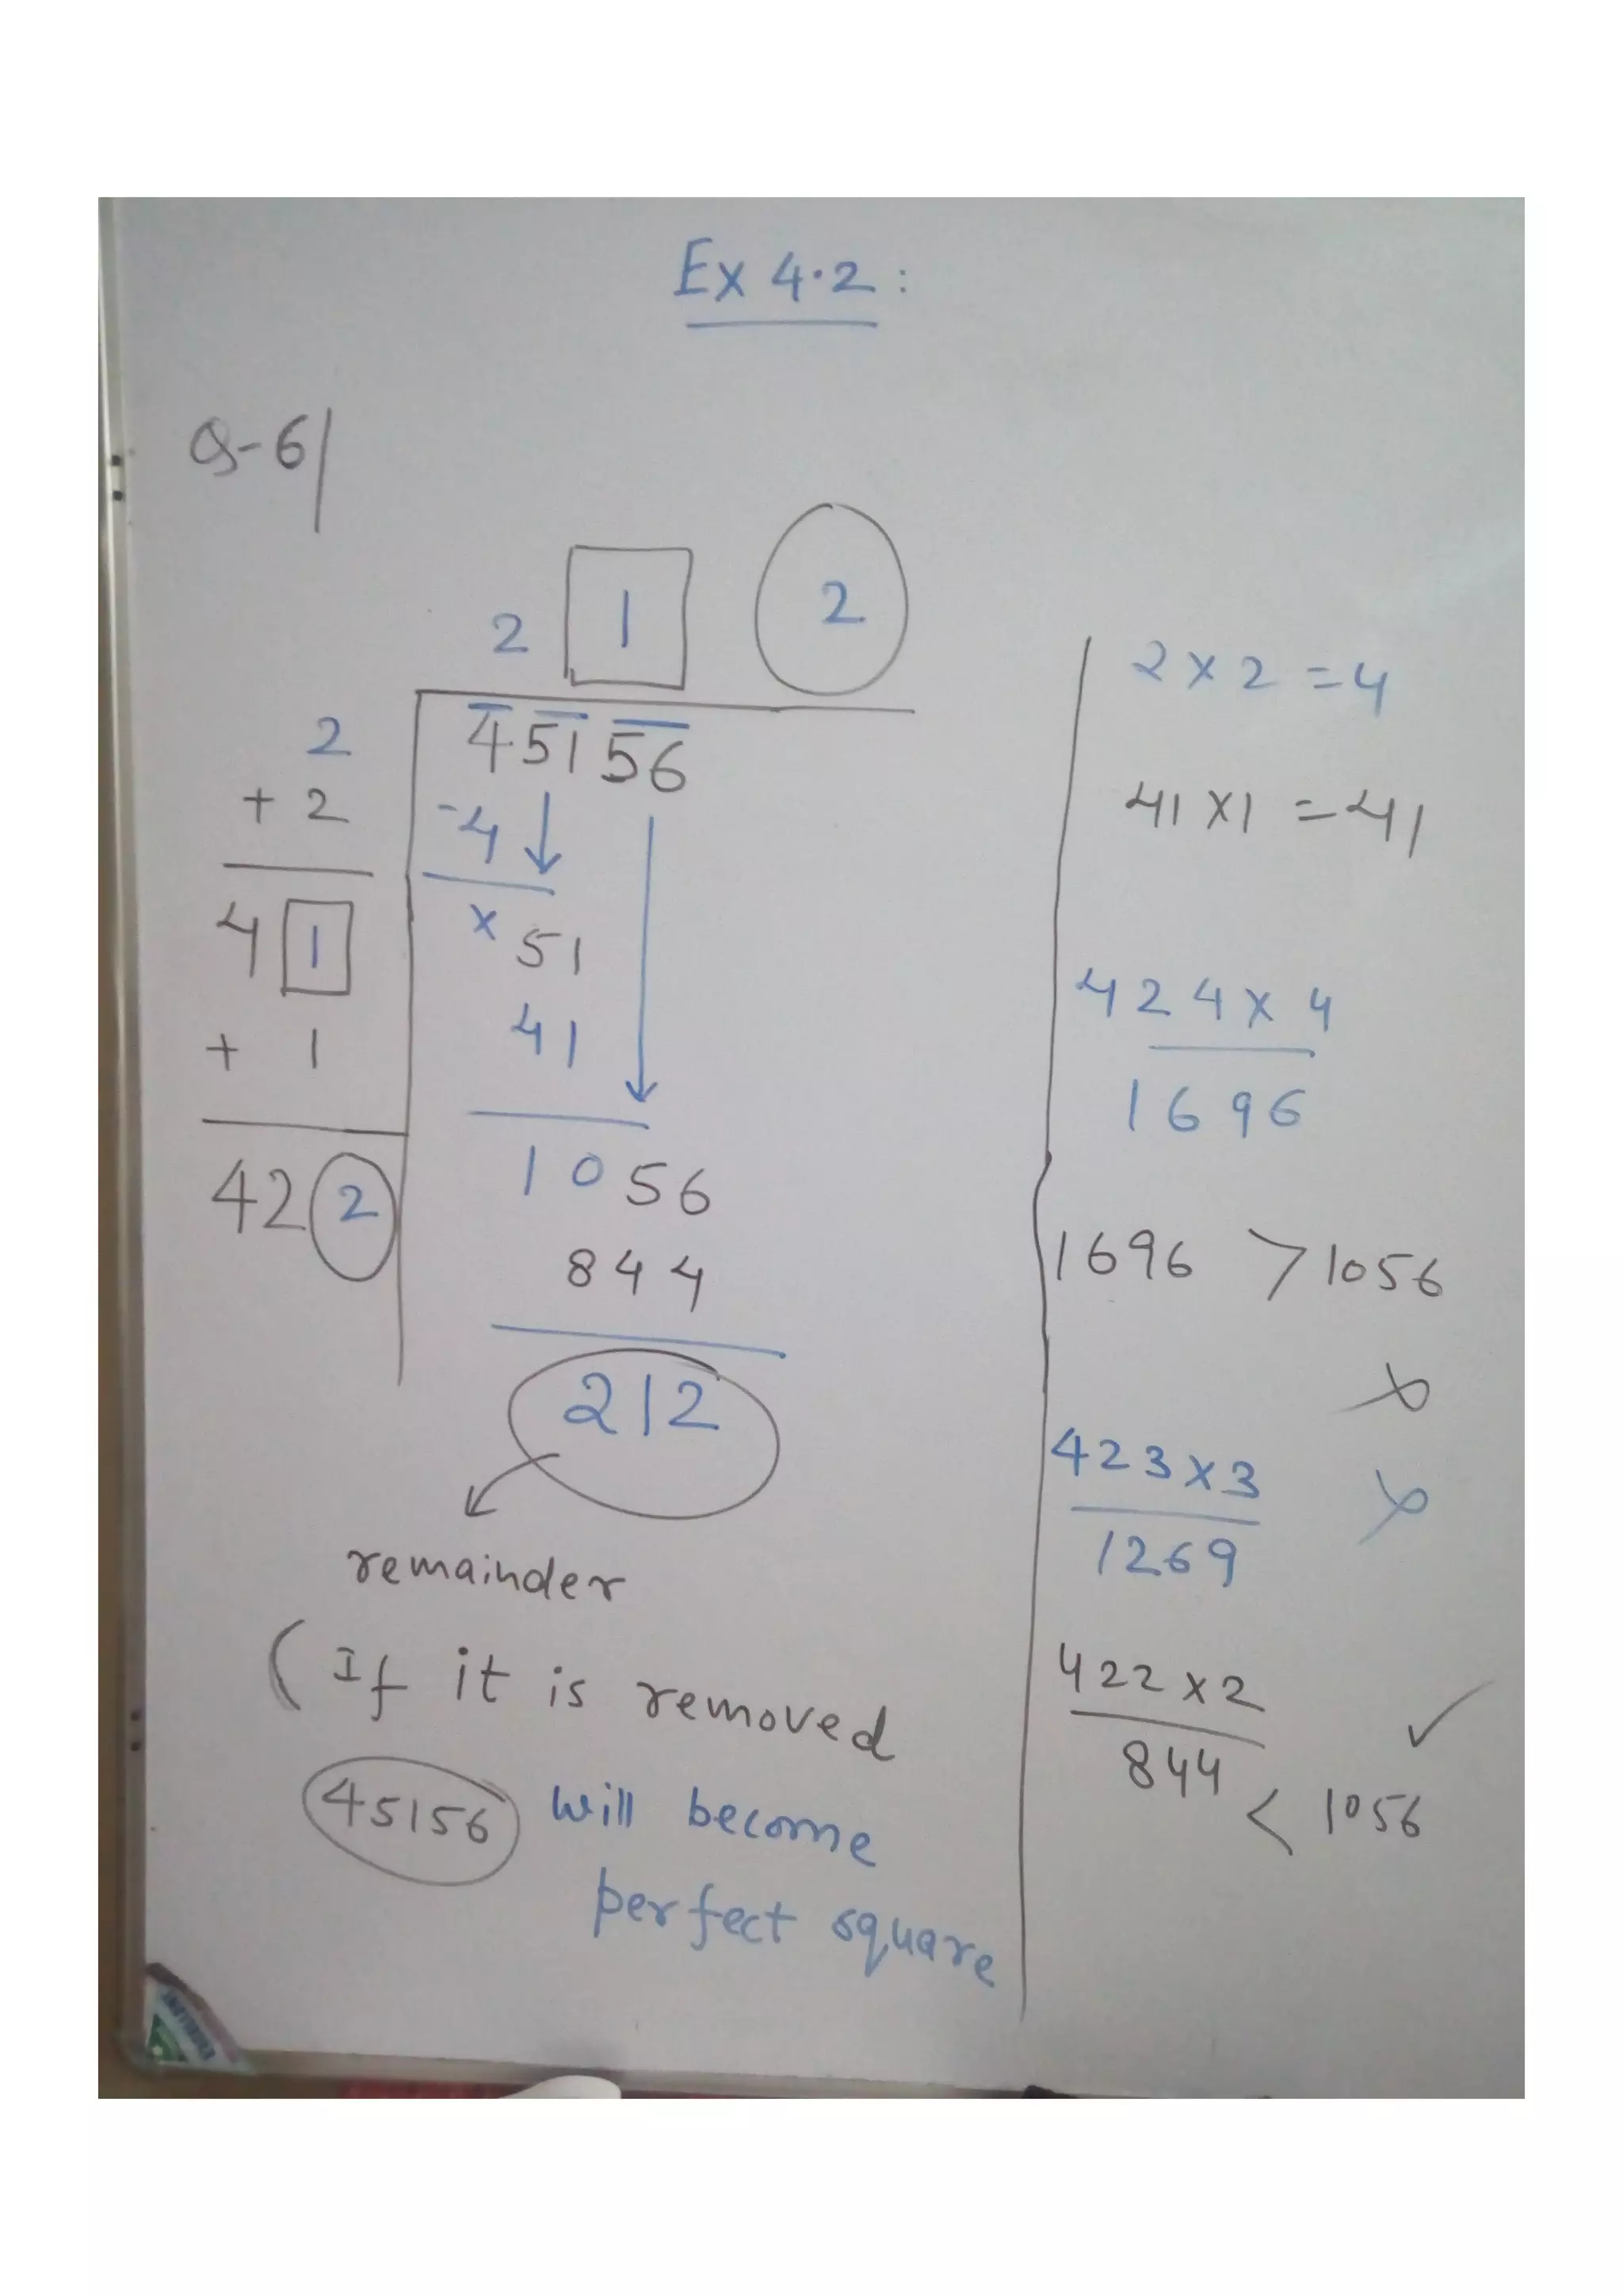 Ex 4.2 :
Q-6
2 1 2
2
+ 2
4 1
+ 1
42 2
45156
-4
x 51
41
1056
844
212
remainder
(If it is removed
45156 will become
perfect square
2 x 2 = 4
41 x 1 = 41
424 x 4
1696
1696 > 1056
423 x 3
1269
422 x 2 ✓
844 < 1056